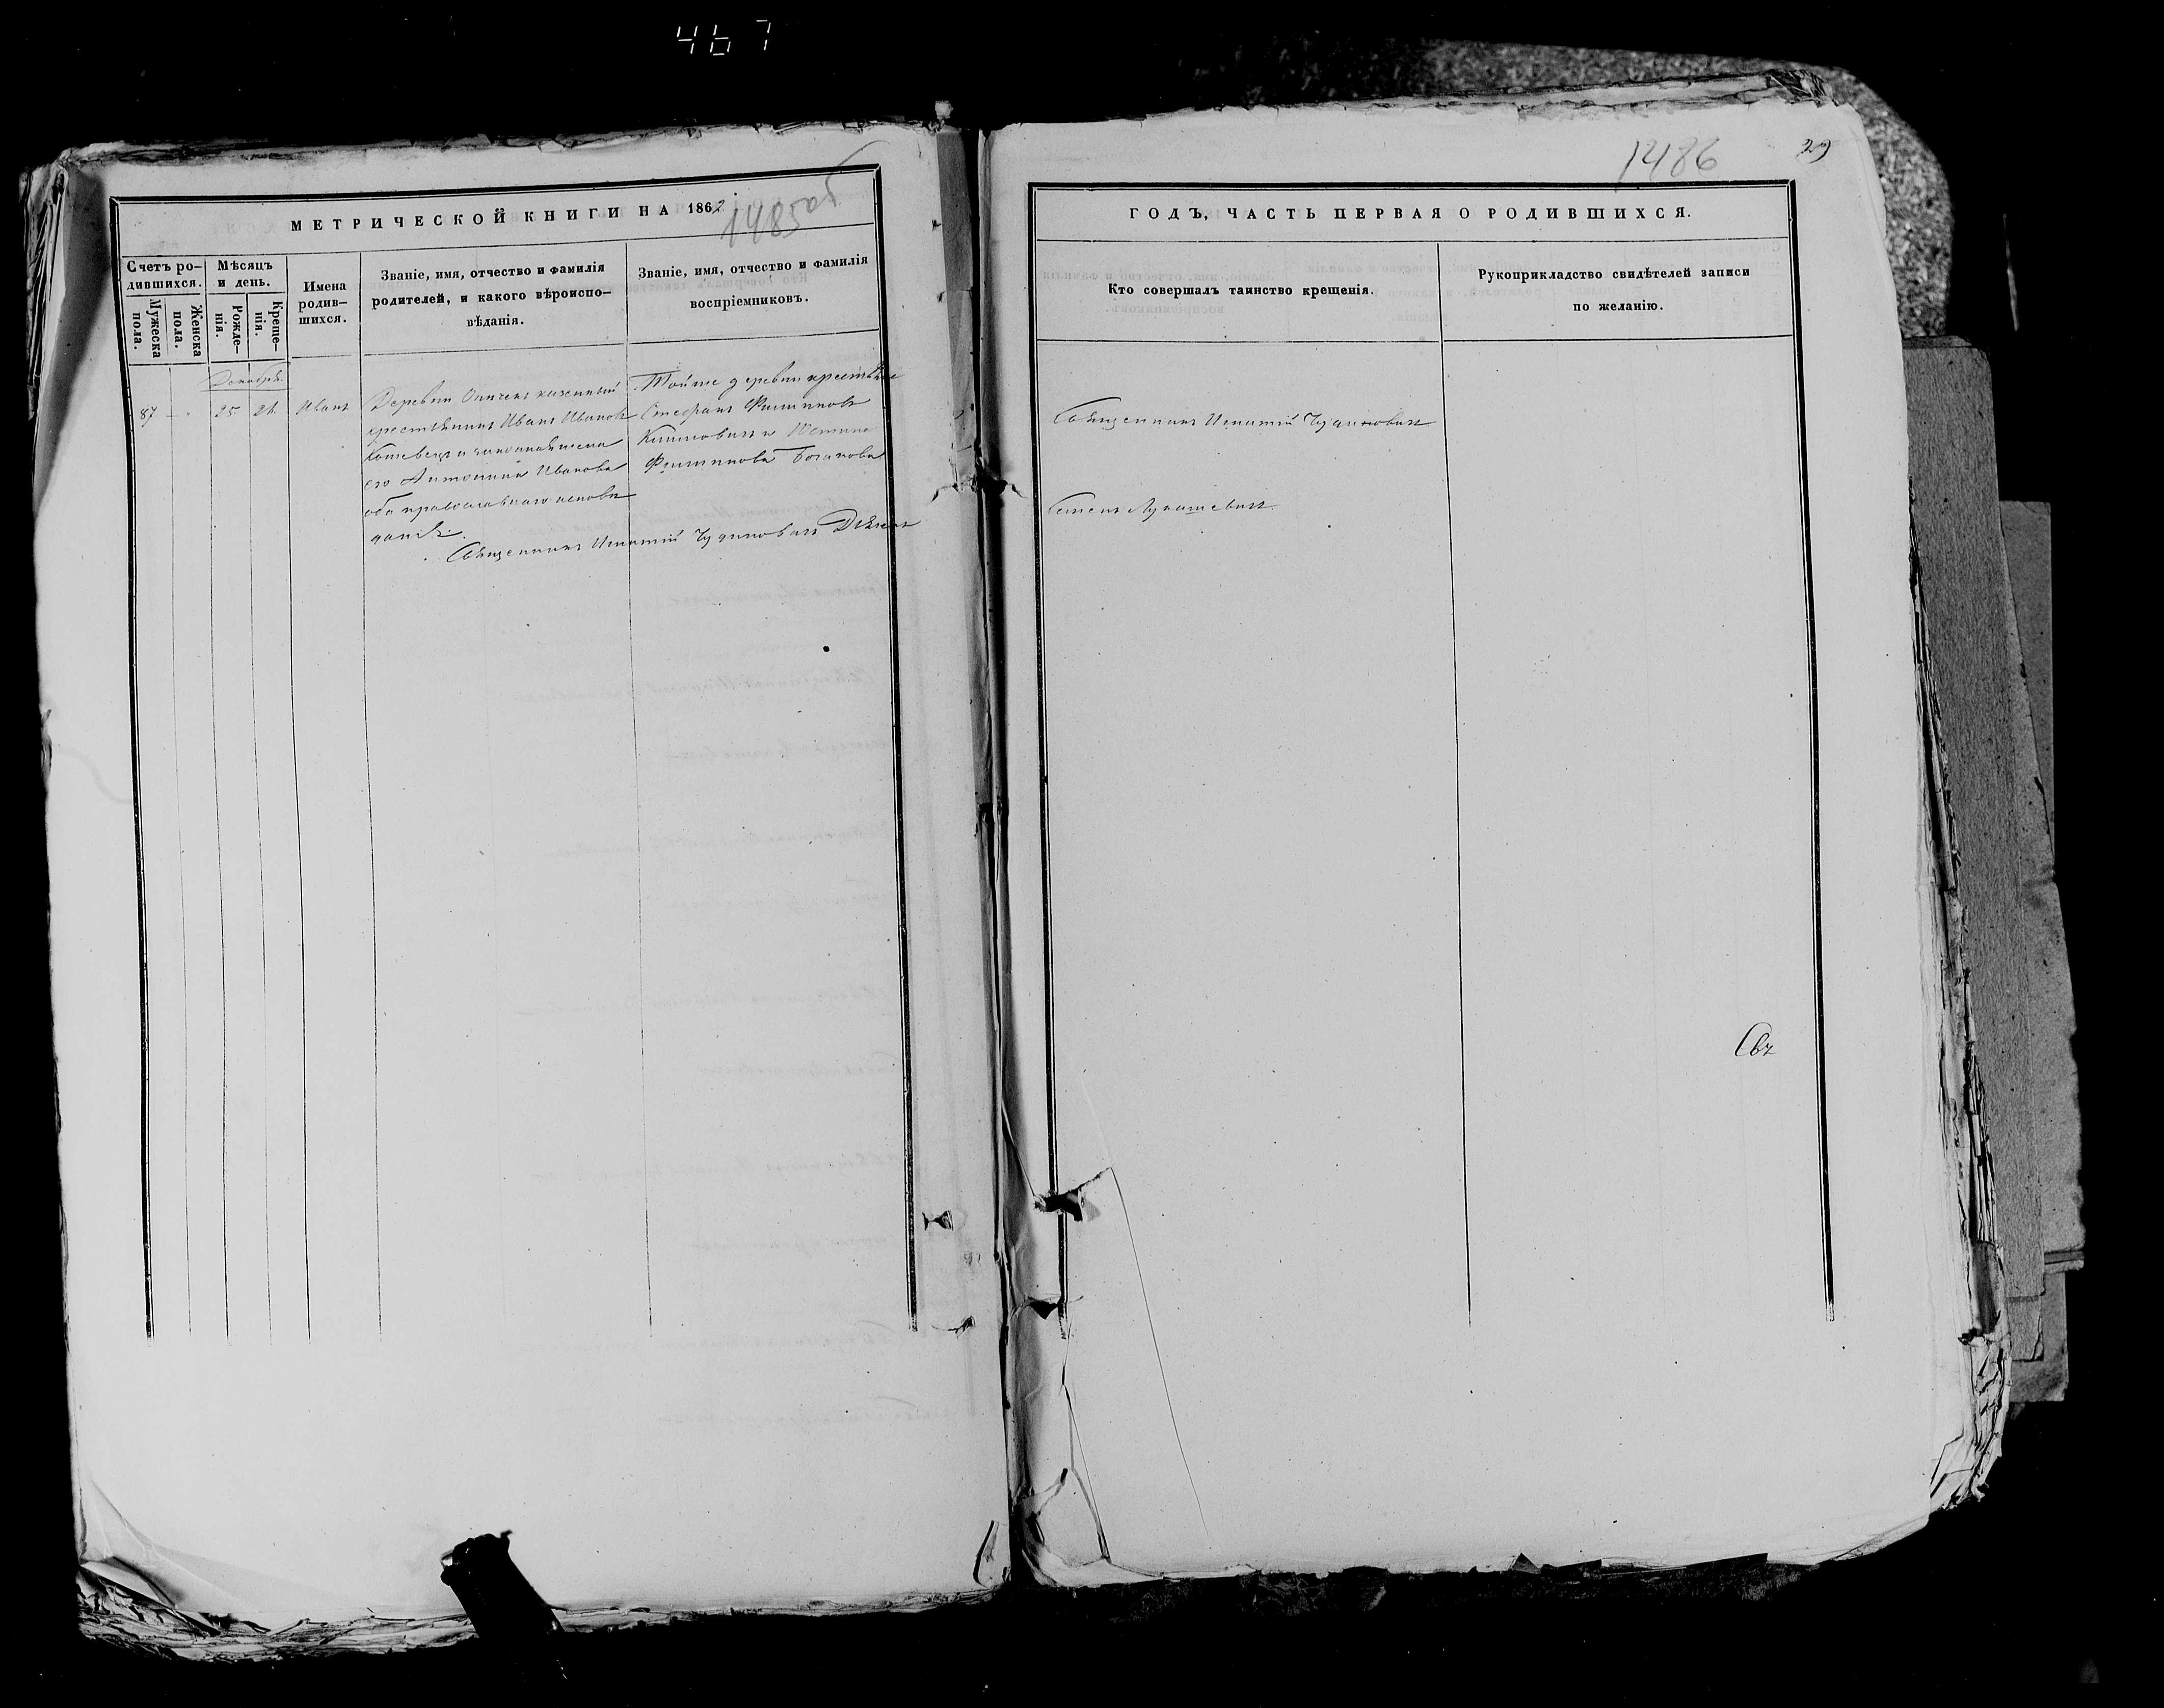 467
МЕТРИЧЕСКОЙ КНИГИ НА 1862
1485об
Счетъ ро-
дившихся.
Мужеска
пола.
Женска
пола.
Мѣсяцъ
и день.
Рожде-
нія.
Креще-
нія.
Имена
родив-
шихся.
Званіе, имя, отчество и фамилія
родителей, и какого вѣроиспо-
вѣданія.
Званіе, имя, отчество и фамилія
воспріемниковъ.
Декабря
87 — 25 26 Иванъ
Деревни казенный
крестьянинъ Иванъ Ивановъ
и законная жена
его Антонина Иванова
оба православнаго исповѣ
данія.
Тойже деревни крестьян
Стефанъ Филиповъ
и
Филипова
Священникъ Игнатій Чудиновичъ
ГОДЪ, ЧАСТЬ ПЕРВАЯ О РОДИВШИХСЯ.
1486
29
Кто совершалъ таинство крещенія.
Рукоприкладство свидѣтелей записи
по желанію.
Священникъ Игнатій Чудиновичъ
Лукашевичъ